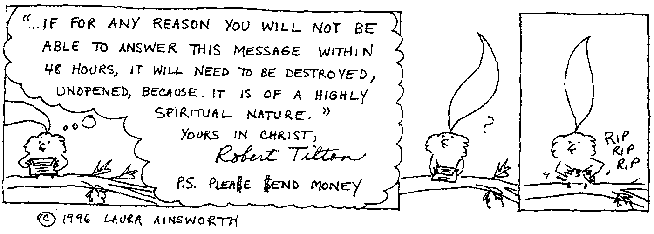 "...IF FOR ANY REASON YOU WILL NOT BE
ABLE TO ANSWER THIS MESSAGE WITHIN
48 HOURS, IT WILL NEED TO BE DESTROYED,
UNOPENED, BECAUSE. IT IS OF A HIGHLY
SPIRITUAL NATURE."
YOURS IN CHRIST,
Robert Tilton
P.S. PLEA$E $END MONEY
?
RIP
RIP
RIP
© 1996 LAURA AINSWORTH